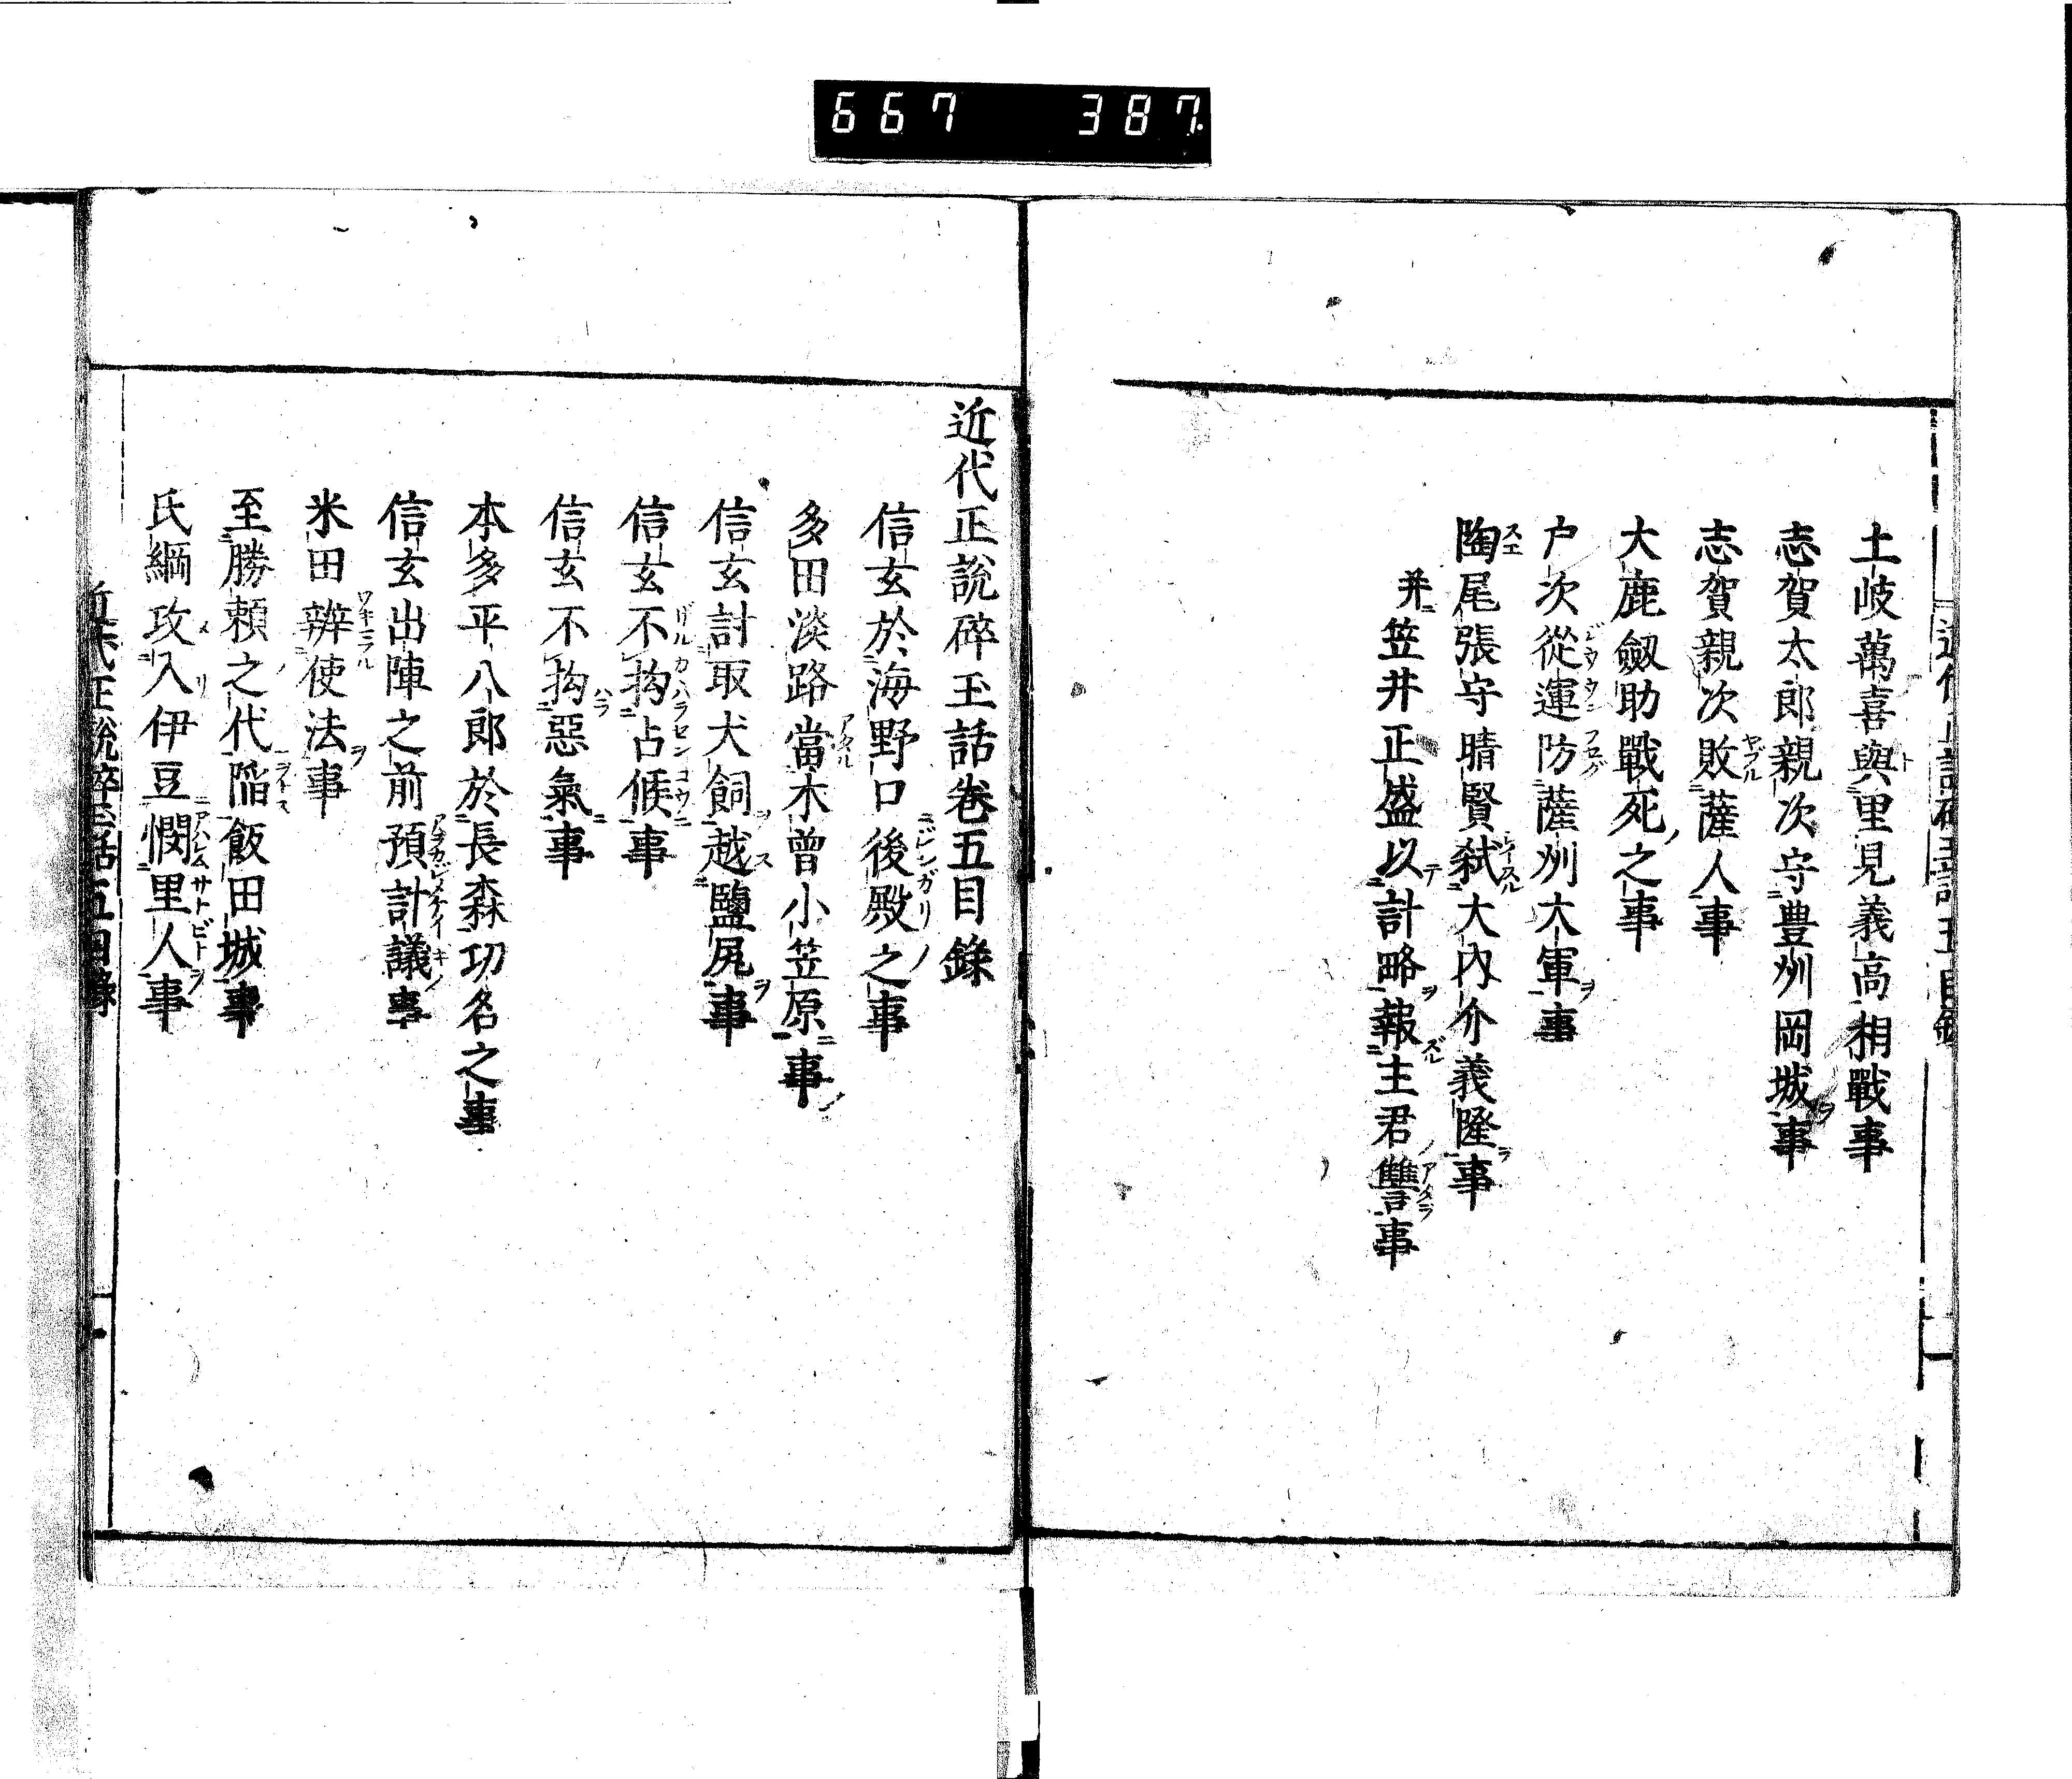 667 387
土岐萬喜與里見義高相戰事
志賀太郎親次守豊州岡城事
志賀親次敗薩人事
大鹿劔助戰死之事
户次從運防薩州大軍事
陶尾張守晴賢弑大內介義隆事
并笠井正盛以計略報主君讐事
近代正說碎玉話卷五目錄
信玄於海野口後殿之事
多田淡路當木曾小笠原事
信玄計取犬飼越鹽尻事
信玄不拘占候事
信玄不拘惡氣事
本多平八郎於長森功名之事
信玄出陣之前預計議事
米田辨使法事
至勝賴之代陷飯田城事
氏綱攻入伊豆憫里人事
近代正說碎玉話五目錄